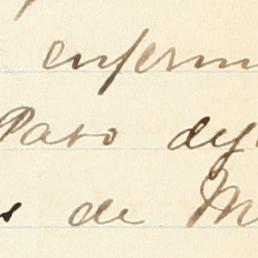 enferm
Paso de
s de M